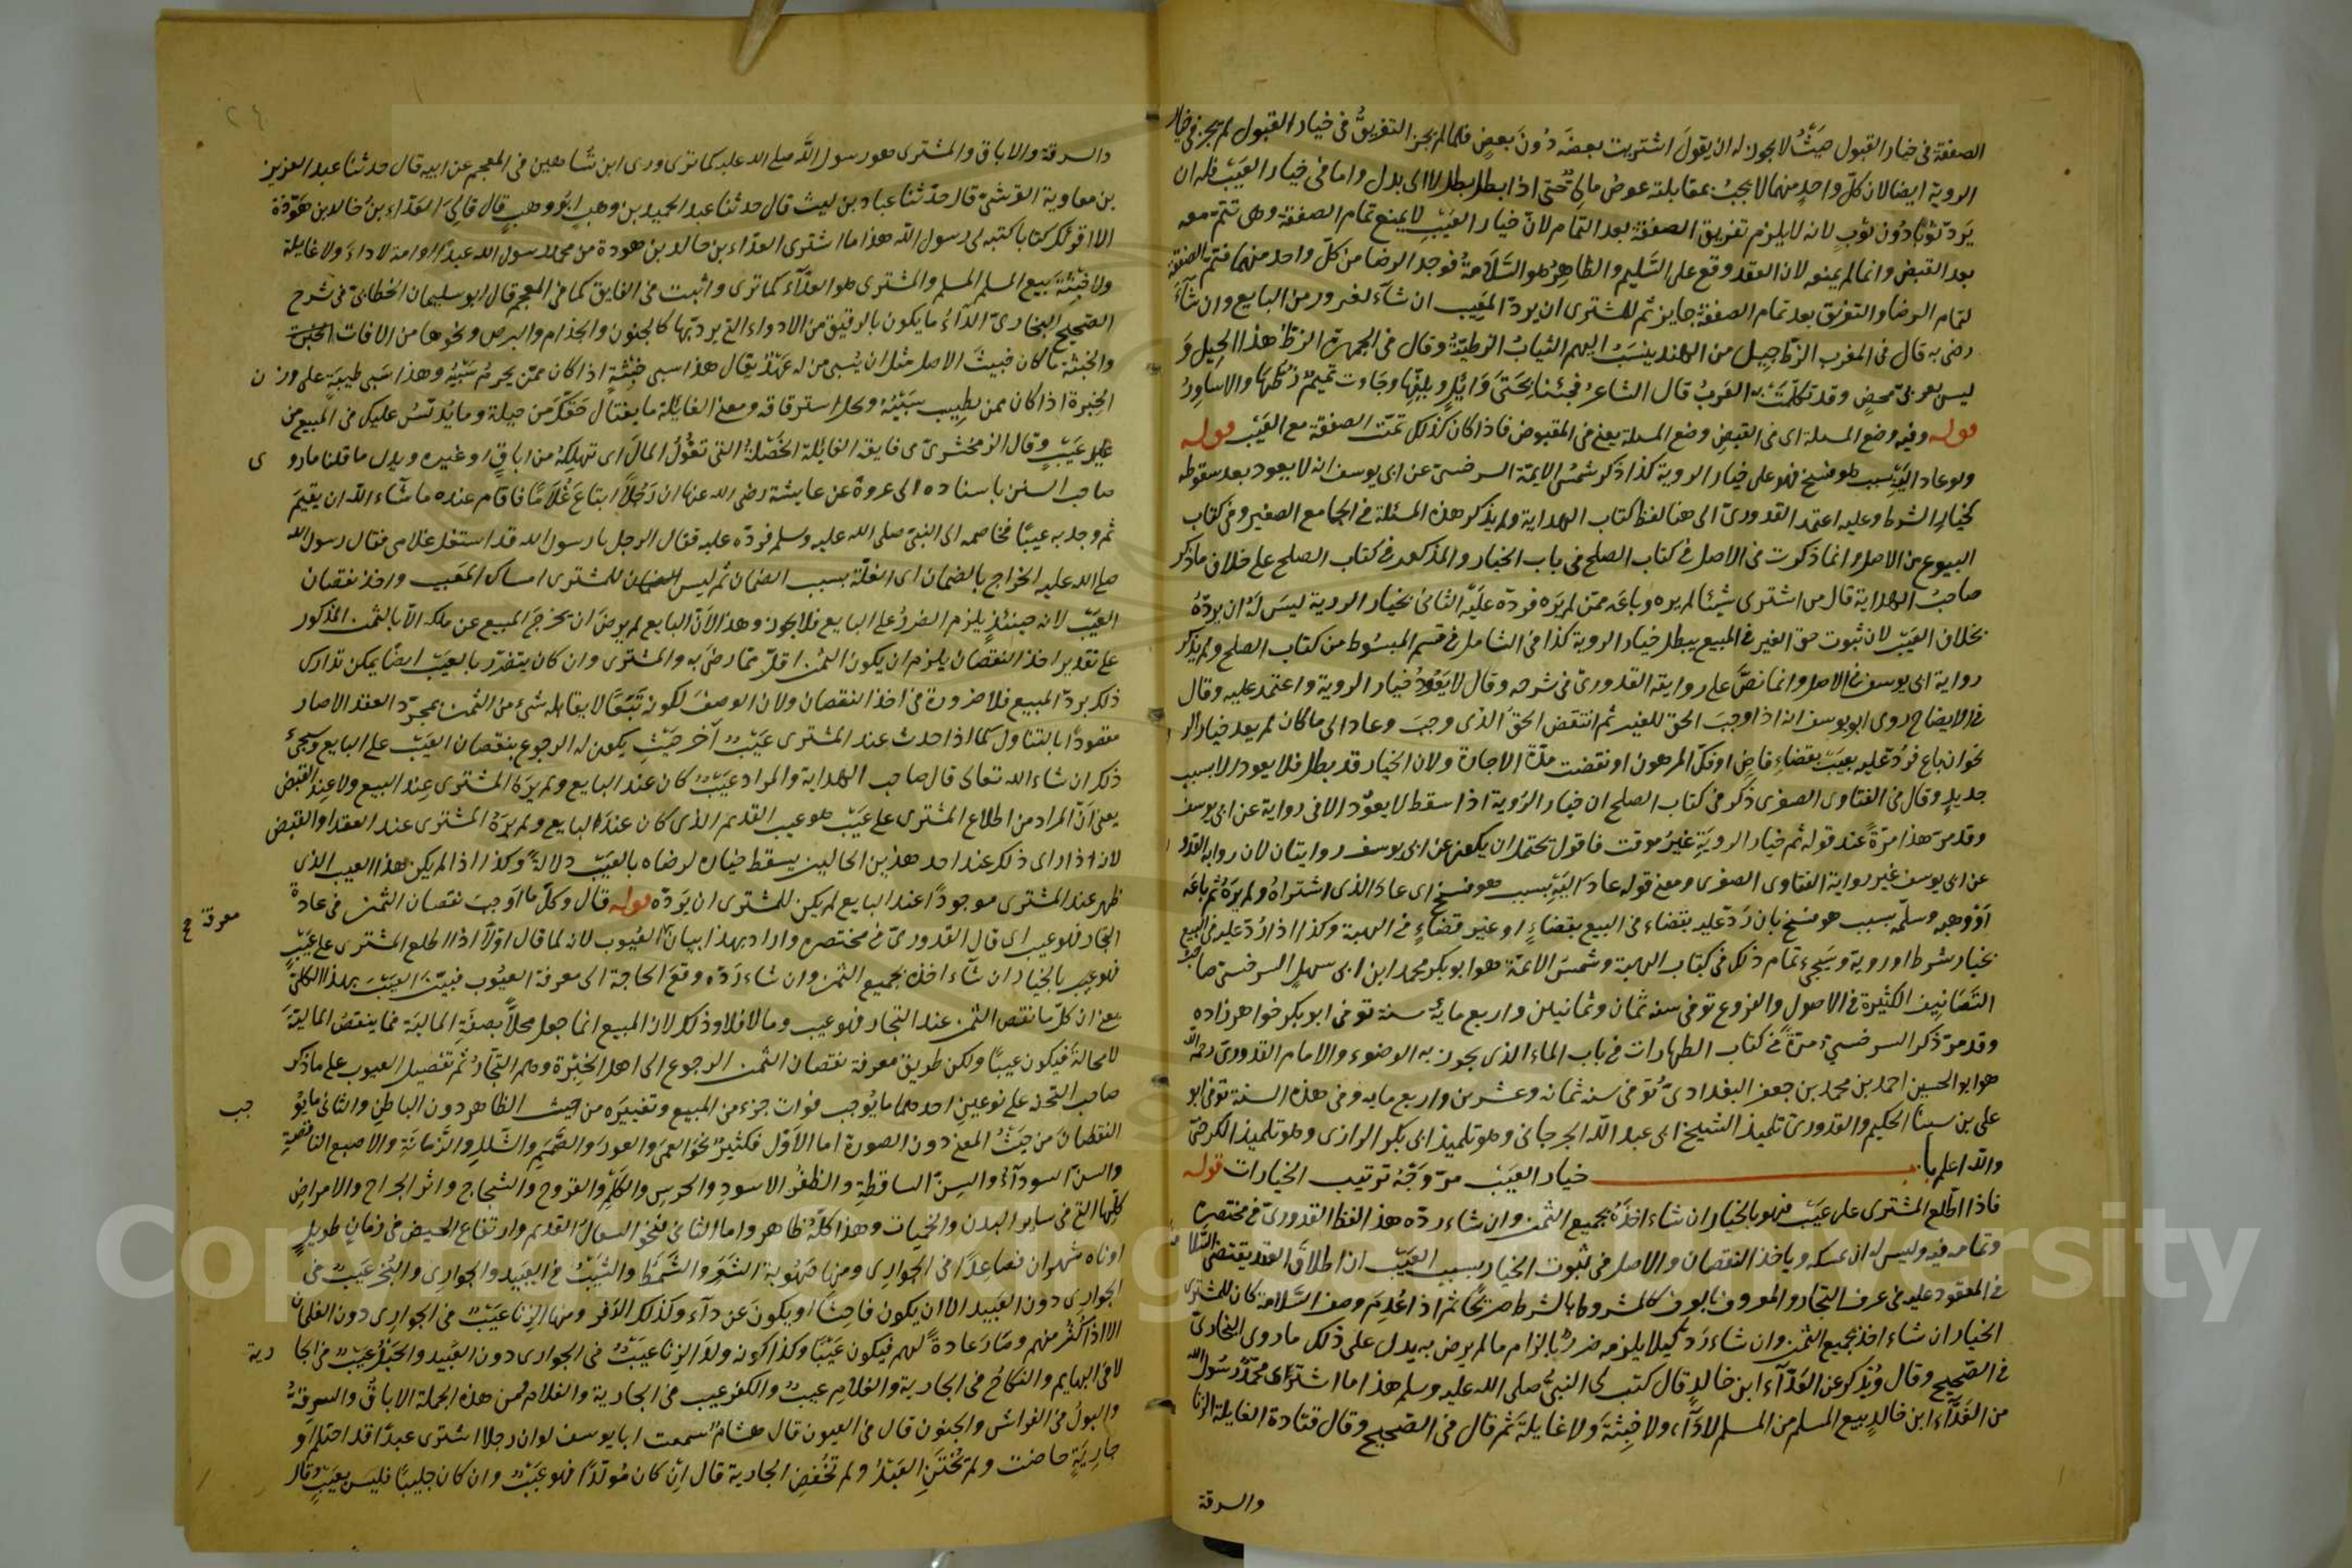 الصفقة في خيار القبول حيث لا يجوز له ان يقول اشتريت بعضه دون بعض فلما لم يجز التفريق في خيار القبول لم يجز في خيار
الروية ايضا لان كل واحد منهما لا يجب بمقابلة عوض مالي حتى اذا بطل بطل لا الى بدل واما في خيار العيب فله ان
يرد ثوبا دون ثوب لانه لا يلزم تفريق الصفقة بعد التمام لان خيار العيب لا يمنع تمام الصفقة وهي تتم معه
بعد القبض وانما لم يمنعه لان العقد وقع على السليم والظاهر هو السلامة فوجد الرضا من كل واحد منهما فتم الصفقة
لتمام الرضا والتفريق بعد تمام الصفقة جايز ثم للمشتري ان يرد المعيب ان شآء لغرور من البايع وان شآء
رضي به قال في المغرب الزط جيل من الهند ينسب اليهم الثياب الزطية وقال في الجمهرة الزط هذا الجيل و
ليس بعربي محض وقد تكلمت به العرب قال الشاعر فجئنا بحيى وايل وبلفها وجاءت تميم زطها والاساور
قوله وفيه وضع المسلة اى في القبض وضع المسلة يعني في المقبوض فاذا كان كذلك تمت الصفقة مع العيب قوله
ولو عاد اليه بسبب هو فسخ فهو على خيار الروية كذا ذكر شمس الايمة السرخسي عن ابي يوسف انه لا يعود بعد سقوطه
كخيار الشرط وعليه اعتمد القدوري الى هنا لفظ كتاب الهداية ولم يذكر هذه المسئلة في الجامع الصغير وفي كتاب
البيوع من الاصل وانما ذكرت في الاصل في كتاب الصلح في باب الخيار والمذكور في كتاب الصلح على خلاف ما ذكر
صاحب الهداية قال من اشترى شيئا لم يره وباعه ممن لم يره فرده عليه الثاني بخيار الروية ليس له ان يرده
بخلاف العيب لان ثبوت حق الغير في المبيع يبطل خيار الروية كذا في الشامل في قسم المبسوط من كتاب الصلح ولم يذكر
رواية ابي يوسف في الاصل وانما نص على روايته القدوري في شرحه وقال لا يعود خيار الروية واعتمد عليه وقال
في الايضاح روى ابو يوسف انه اذا وجب الحق للغير ثم انتقض الحق الذى وجب وعاد الى ما كان لم يعد خيار الر
نحو ان باع فرد عليه بعيب بقضاء قاض او فك المرهون او نقضت مدة الاجارة ولان الخيار قد بطل فلا يعود الا بسبب
جديد وقال في الفتاوى الصغرى ذكر في كتاب الصلح ان خيار الروية اذا سقط لا يعود الا في رواية عن ابي يوسف
وقد مر هذا مرة عند قوله ثم خيار الروية غير موقت فاقول يحتمل ان يكون عن ابي يوسف روايتان لان رواية القدو
عن ابي يوسف غير رواية الفتاوى الصغرى ومعنى قوله عاد اليه بسبب هو فسخ اى عاد الذى اشتراه ولم يره ثم باعه
او وهبه وسلمه بسبب هو فسخ بان رد عليه بقضاء في البيع بقضاء او غير قضاء في الهبة وكذا اذا رد عليه في البيع
بخيار شرط او روية وسيجيء تمام ذلك في كتاب الهبة وشمس الائمة هو ابو بكر محمد ابن ابي سهل السرخسي صاحب
التصانيف الكثيرة في الاصول والفروع توفي سنه ثمان وثمانين واربع ماية سنة توفي ابو بكر خواهر زاده
وقد مر ذكر السرخسي مرة في كتاب الطهارات في باب الماء الذى يجوز به الوضوء والامام القدوري رحمه الله
هو ابو الحسين احمد بن محمد بن جعفر البغدادي توفي سنه ثمانه وعشرين واربع مايه وفي هذه السنة توفي ابو
على بن سينا الحكيم والقدوري تلميذ الشيخ ابي عبد الله الجرجاني وهو تلميذ ابي بكر الرازى وهو تلميذ الكرخي
والله اعلم باب خيار العيب مر وجه ترتيب الخيارات قوله
فاذا اطلع المشترى على عيب فهو بالخيار ان شاء اخذه بجميع الثمن وان شاء رده هذا لفظ القدوري في مختصره
وتمامه فيه وليس له ان يمسكه وياخذ النقصان والاصل في ثبوت الخيار بسبب العيب ان اطلاق العقد يقتضي السلامة
في المعقود عليه في عرف التجار والمعروف بالعرف كالمشروط بالشرط صريحا ثم اذا عدم وصف السلامة كان للمشترى
الخيار ان شاء اخذ بجميع الثمن وان شاء رد كيلا يلزمه ضرر بالزام ما لم يرض به يدل على ذلك ما روى البخارى
في الصحيح وقال ويذكر عن العداء ابن خالد قال كتب لي النبي صلى الله عليه وسلم هذا ما اشترى محمد رسول الله
من العداء ابن خالد بيع المسلم من المسلم لا دآء ولا خبثة ولا غايلة ثم قال في الصحيح وقال قتادة الغايلة الزنا
والسرقة
والسرقة والاباق والمشترى هو رسول الله صلى الله عليه كما ترى وروى ابن شاهين في المعجم عن ابيه قال حدثنا عبد العزيز
بن معاوية القرشي قال حدثنا عباد بن ليث قال حدثنا عبد الحميد بن وهب ابو وهب قال قال لي العداء بن خالد بن هوذة
الا اقرئك كتابا كتبه لي رسول الله هذا ما اشترى العداء بن خالد بن هوذة من محمد رسول الله عبدا او امة لا داء ولا غايلة
ولا خبثة بيع المسلم المسلم والمشترى هو العداء كما ترى واثبت في الفايق كما في المعجم قال ابو سليمان الخطابي في شرح
الصحيح البخاري الدآء ما يكون بالرقيق من الادواء التي يرد بها كالجنون والجذام والبرص ونحوها من الافات الخبث
والخبثة ما كان خبيث الاصل مثل ان يسبى من له عهد يقال هذا سبى خبثة اذا كان ممن يحرم سبيه وهذا سبى طيبة على وزن
الخيرة اذا كان ممن يطيب سبيه وحل استرقاقه ومعنى الغايلة ما يغتال حقك من حيلة وما يدلس عليك في المبيع من
عيب وقال الزمخشري في فايقه الغايلة الخصلة التي تغول المال اى تهلكه من اباق او غيره ويدل ما قلنا ما روى
صاحب السنن باسناده الى عروة عن عايشة رضي الله عنها ان رجلا ابتاع غلاما فاقام عنده ما شآء الله ان يقيم
ثم وجد به عيبا فخاصمه الى النبي صلى الله عليه وسلم فرده عليه فقال الرجل يا رسول الله قد استغل غلامى فقال رسول الله
صلى الله عليه الخراج بالضمان اى الغلة بسبب الضمان ثم ليس للمشترى امساك المعيب واخذ نقصان
العيب لانه حينئذ يلزم الضرر على البايع فلا يجوز وهذا لان البايع لم يرض ان يخرج المبيع عن ملكه الا بالثمن المذكور
على تقدير اخذ النقصان يلزم ان يكون الثمن اقل مما رضي به والمشترى وان كان يتضرر بالعيب ايضا يمكن تدارك
ذلك برد المبيع فلا ضرورة في اخذ النقصان ولان الوصف لكونه تبعا لا يقابله شيء من الثمن بمجرد العقد الا صار
مقصودا بالتناول كما اذا حدث عند المشترى عيب آخر حيث يكون له الرجوع بنقصان العيب على البايع وسيجيء
ذلك ان شاء الله تعالى قال صاحب الهداية والمراد عيب كان عند البايع ولم يره المشترى عند البيع ولا عند القبض
يعني ان المراد من اطلاع المشترى على عيب هو عيب القديم الذى كان عند البايع ولم يره المشترى عند العقد او القبض
لانه اذا راى ذلك عند احد هذين الحالين يسقط خياره لرضاه بالعيب دلالة وكذا اذا لم يكن هذا العيب الذى
ظهر عند المشترى موجودا عند البايع لم يكن للمشترى ان يرده قوله قال وكل ما اوجب نقصان الثمن في عادة
التجار فهو عيب اى قال القدوري في مختصره واراد بهذا بيان العيوب لانه لما قال اولا اذا اطلع المشترى على عيب
فهو بالخيار ان شآء اخذه بجميع الثمن وان شاء رده وقع الحاجة الى معرفة العيوب فبين العيب بهذا الكلي
يعني ان كل ما نقص الثمن عند التجار فهو عيب وما لا فلا وذلك لان المبيع انما جعل محلا بصفة المالية فما ينقص المالية
لا محالة فيكون عيبا ولكن طريق معرفة نقصان الثمن الرجوع الى اهل الخبرة وهم التجار ثم تفصيل العيوب على ما ذكر
صاحب التحفة على نوعين احدهما ما يوجب فوات جزء من المبيع وتغييره من حيث الظاهر دون الباطن والثاني ما يو
جب
النقصان من حيث المعنى دون الصورة اما الاول فكثير نحو العمى والعور والصمم والشلل والزمانة والاصبع الناقصة
والسن السودآء والسن الساقطة والظفر الاسود والخرس والكلم والقروح والشجاج واثر الجراح والامراض
كلها التي في ساير البدن والحميات وهذا كله ظاهر واما الثاني فنحو السعال القديم وارتفاع الحيض في زمان طويل
ادناه شهران فصاعدا في الجوارى ومنها صهوبة الشعر والشمط والشيب في العبيد والجوارى والبخر عيب في
الجوارى دون العبيد الا ان يكون فاحشا او يكون عن دآء وكذلك الدفر ومنها الزنا عيب في الجوارى دون الغلمان
الا اذا كثر منهم وصار عادة لهم فيكون عيبا وكذا كونه ولد الزنا عيب في الجوارى دون العبيد والحبل عيب في الجا
رية
لا في البهايم والنكاح في الجارية والغلام عيب والكفر عيب في الجارية والغلام فمن هذه الجملة الاباق والسرقة
والبول في الفراش والجنون قال في العيون قال هشام سمعت ابا يوسف لو ان رجلا اشترى عبدا قد احتلم او
جارية حاضت ولم يختتن العبد ولم تخفض الجارية قال ان كان مولدا فهو عيب وان كان جليبا فليس بعيب وقال
معرفة
Copyright © King Saud University